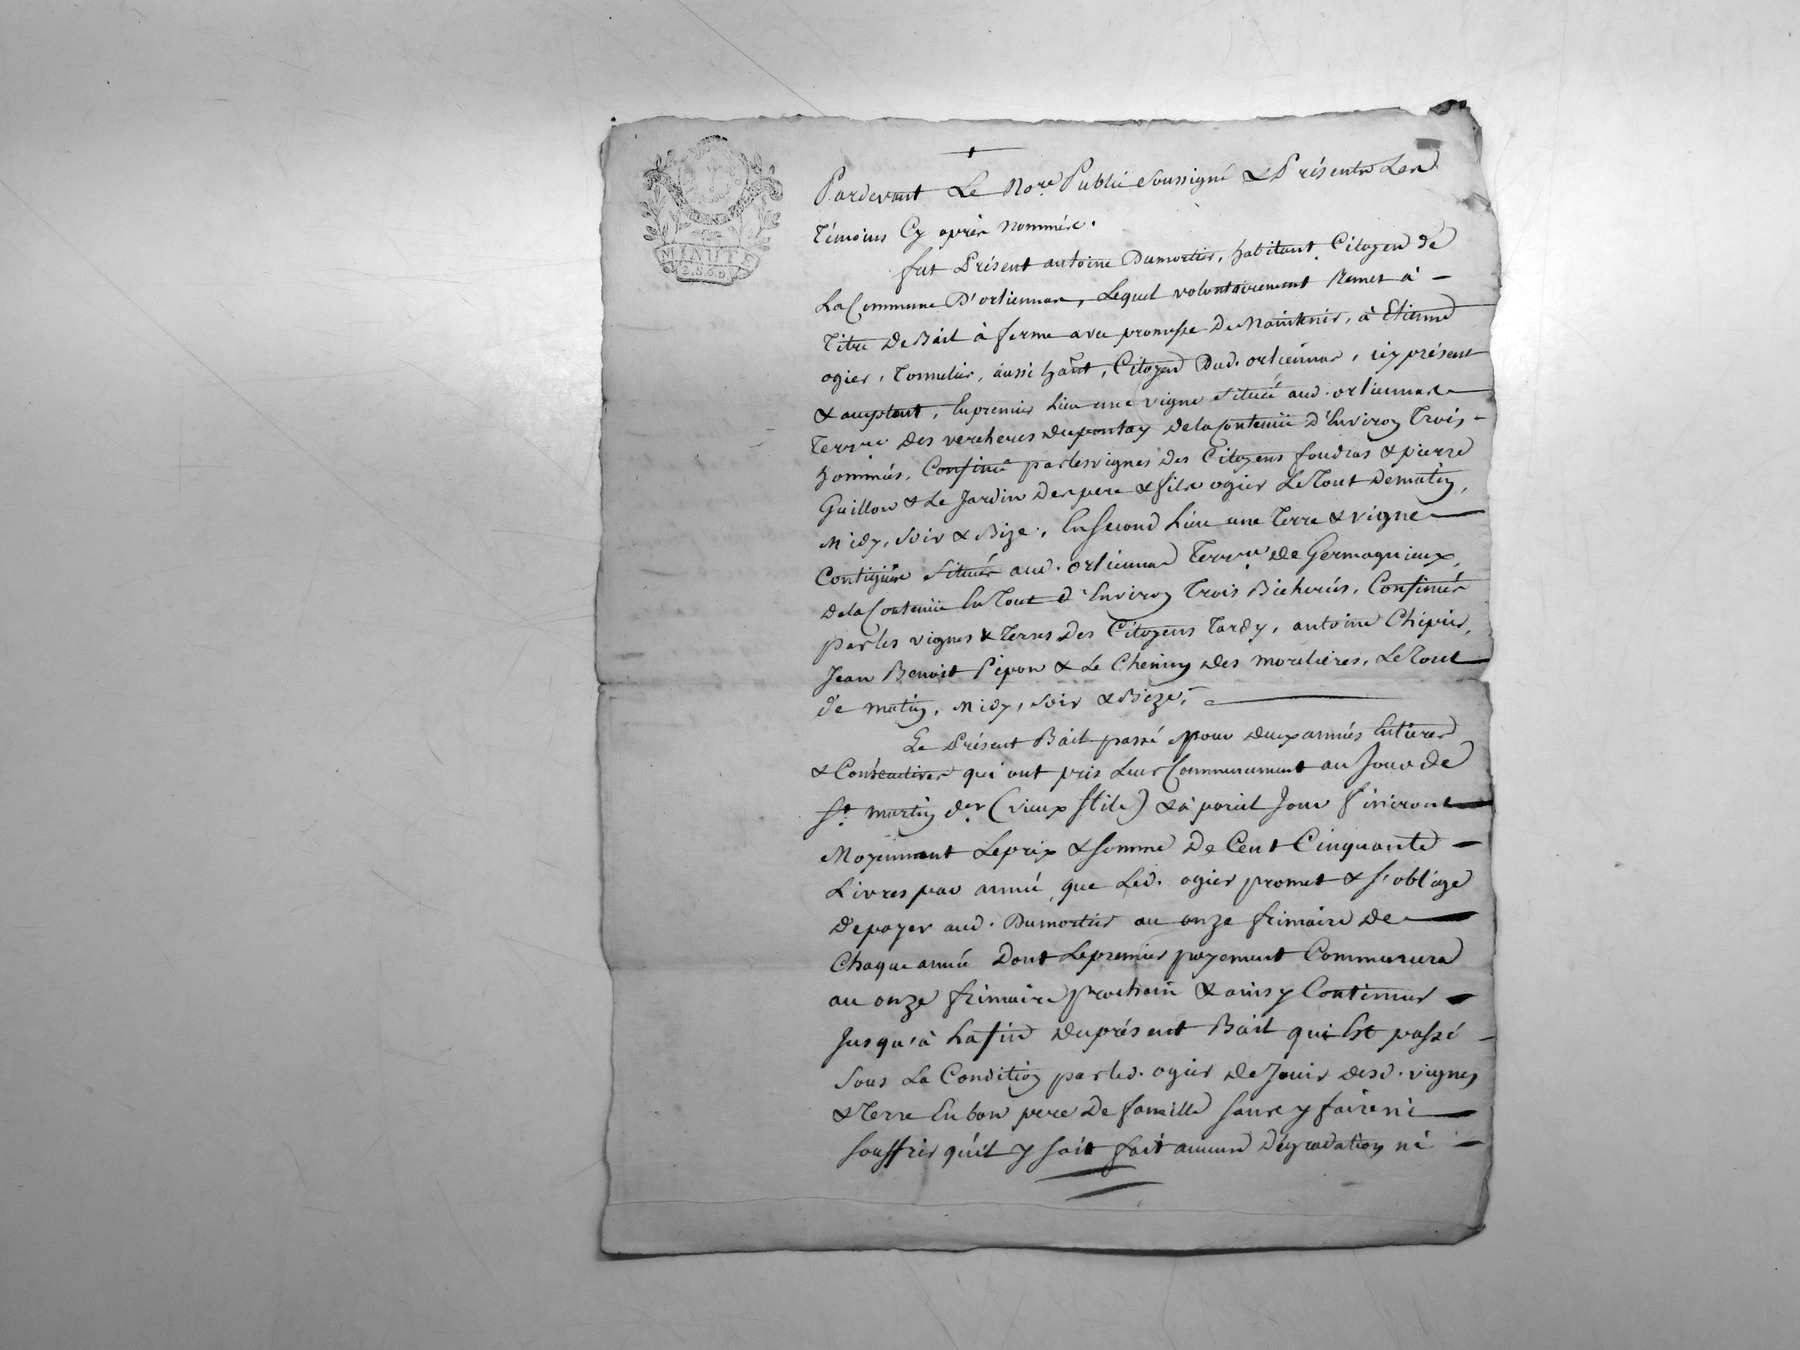 MINUTE
Pardevant Le No.re Public Soussigné & Présents Les
Témoins Cy après nommés.
fut Présent antoine Dumortier, habitant Citoyen de
La Commune D'orliennas, Lequel volontairement Remet à -
Titre De Bail à ferme avec promesse De Maintenir, à Etienne
ogier, Tonnelier, aussi hânt, Citoyen Dud. orliennas, icy présent
& acceptant, En premier Lieu une vigne Située aud. orliennas
Terr.re des vercheres dupontay de la Contenüe d'Environ Trois -
hommées, Confinée par les vignes des Citoyens foudras & pierre
Guillon & Le Jardin des pere & fils ogier Le Tout De matin,
Midy, Soir & Bize, En Second Lieu une Terre & vigne
Contigües Situés aud. orliennas Terr.re de Germagnieux,
de la Contenüe En Tout d'Environ Trois Bicherées, Confinés
par les vignes & Terres des Citoyens Tardy, antoine Chipier,
Jean Benoit Pipon & Le Chemin des mouilières, Le Tout
de matin, Midy, Soir & Bize,
Le Présent Bail passé pour deux années Entieres
& Consécutives qui ont pris Leur Commencement au Jour de
St. martin der. (vieux Stile) & à pareil Jour finiront
Moyennant Le prix & somme De Cent Cinquante -
Livres par année, que Led. ogier promet & s'oblige
de payer aud. Dumortier au onze frimaire De
Chaque année Dont Le premier payement Commencera
au onze frimaire prochain & ainsy Continuer
Jusqu'à La fin du présent Bail qui Est passé -
Sous La Condition par led. ogier de Jouir desd. vignes
& Terre En bon pere De famille sans y faire ni
souffrir qu'il y soit fait aucune dégradation ni -